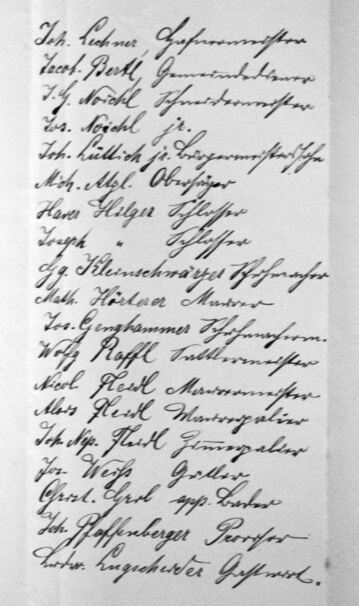 Joh. Lechner, Hafnermeister
Jacob Bertl, Gemeindediener
J. G. Noichl Schneidermeister
Jos. Noichl jr.
Joh. Lüttich jr. Bürgermeisterssohn
Mich. Atzl. Oberjäger
Xaver Hilger Schlosser
Joseph " Schlosser
Gg. Kleinschwärzer Schuhmacher
Math. Hörterer Maurer
Jos. Genghammer Schuhmacherm.
Wolfg Raffl Sattlermeister
Nicol. Heidl Maurermeister
Alois Heidl Maurerpalier
Joh. Nep. Heidl Zimmerpalier
Jos. Weiß Gütler
Christ. Grol app. Bader
Joh. Pfaffenberger Provisor
Ludw. Lugscheider Gastwirt.